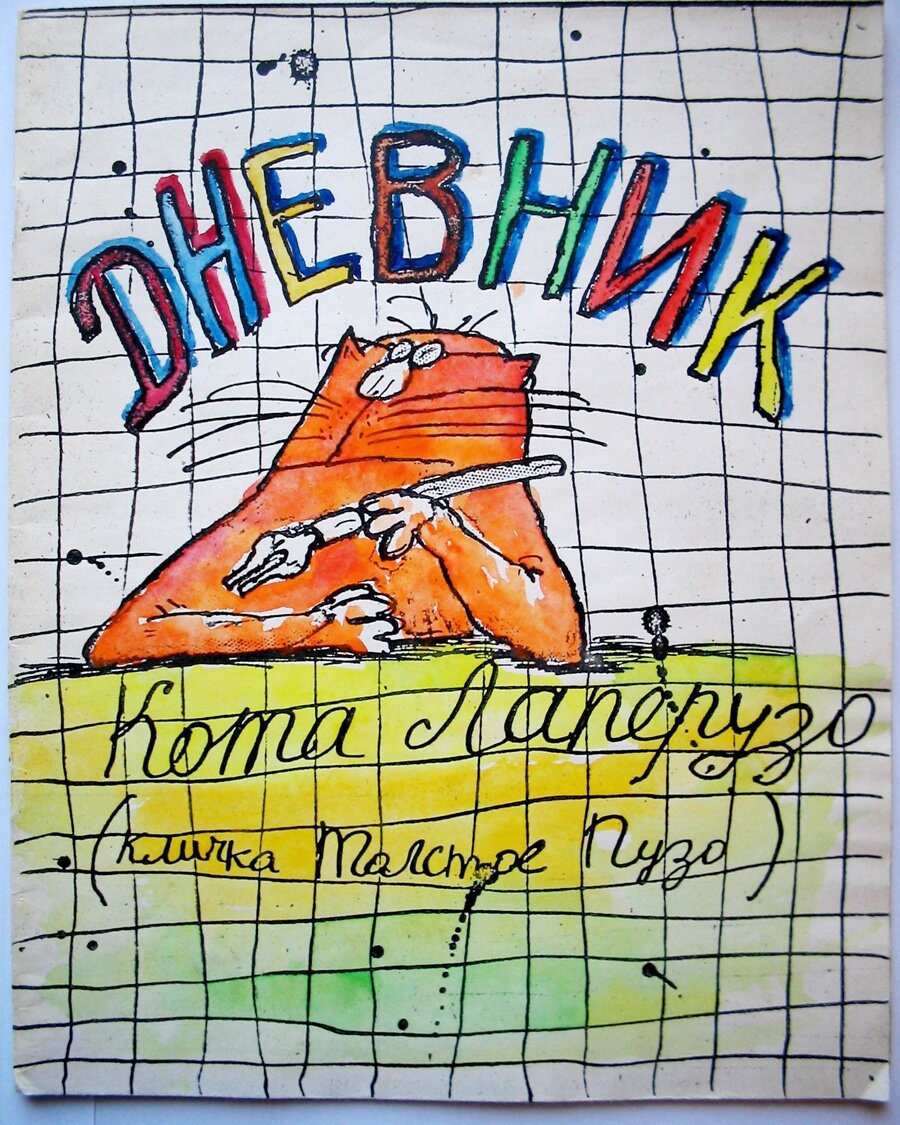 ДНЕВНИК
Кота Лаперузо
(кличка Толстое Пузо)